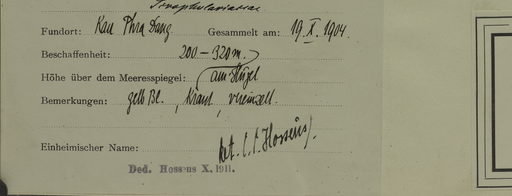 Scrophulariaceae
Fundort: Kau Phra Dang Gesammelt am: 19. X. 1904.
Beschaffenheit: 200-320 m.
Höhe über dem Meeresspiegel: am Hügel
Bemerkungen: gelb Bl., Kraut, vereinzelt.
Einheimischer Name: det. C. C. Hosseus.
Ded. Hosseus X. 1911.